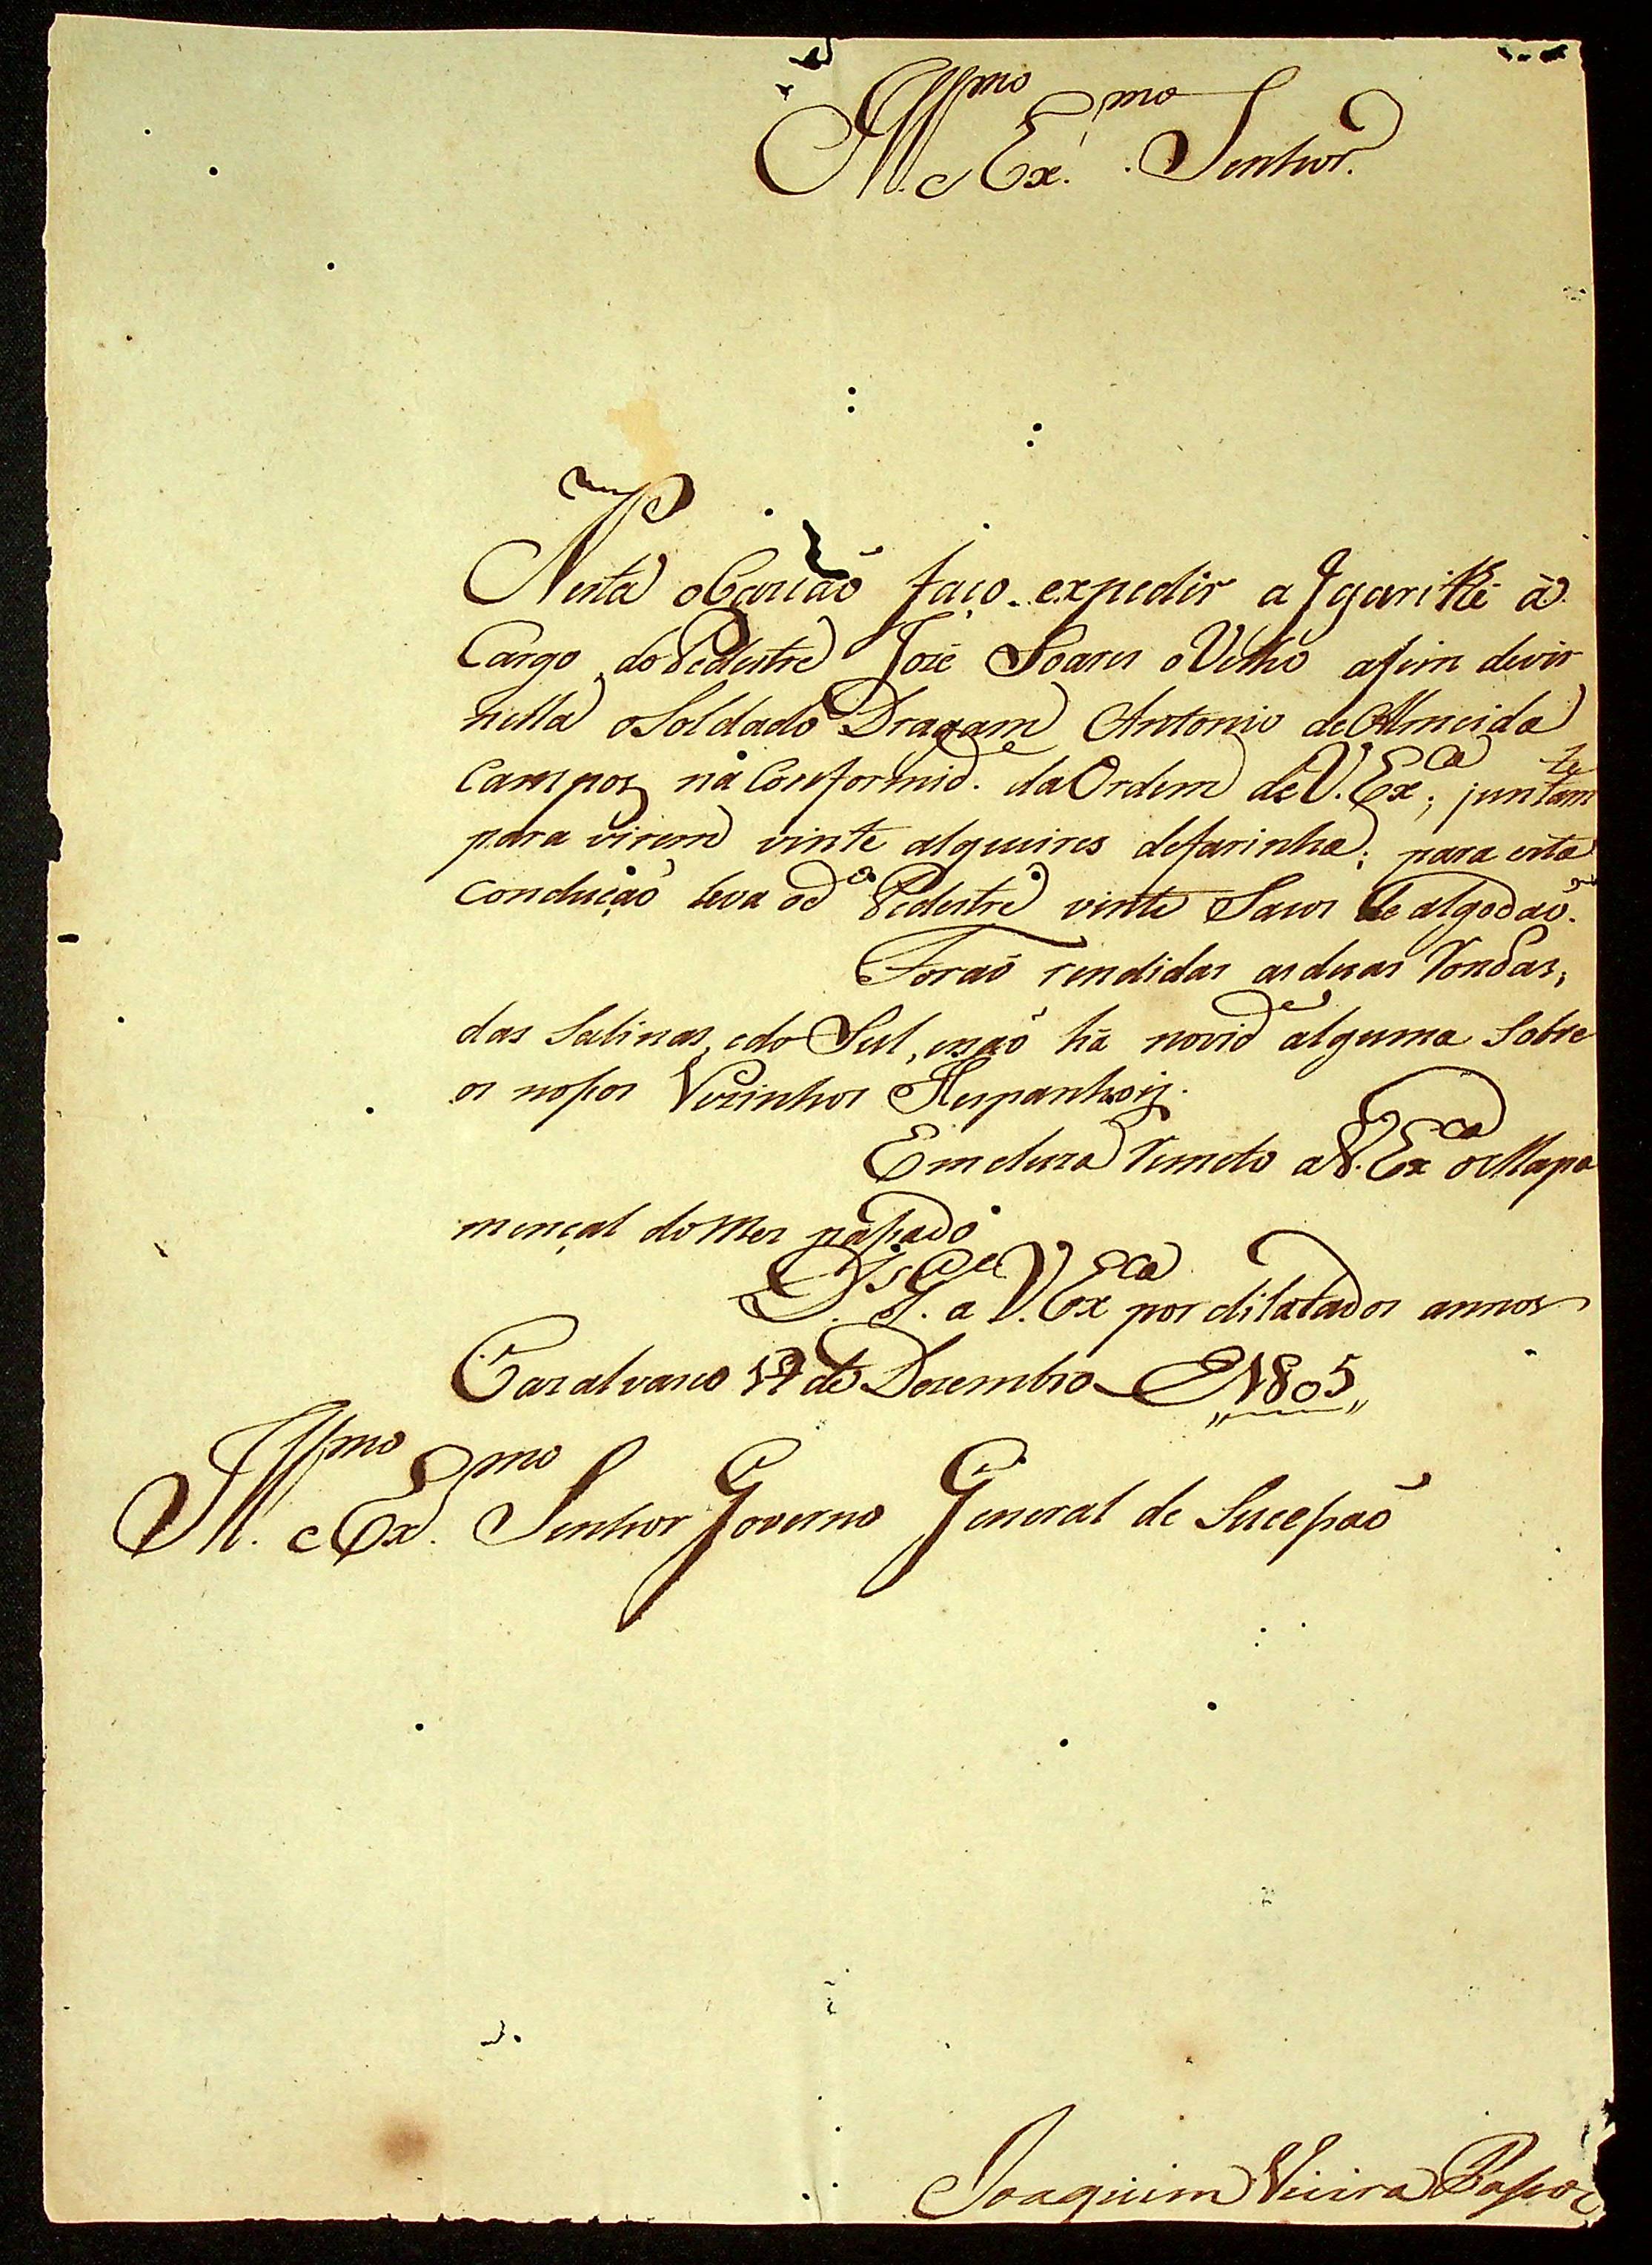 Ill.mo e Ex.mo Senhor.
Nesta ocazião faço expedir a Igarité à
Cargo do Pedestre José Soares o Velho afim de vir
nella o Soldado Dragam Antonio de Almeida
Campos na Conformid.e da Ordem de V. Ex.ca; juntam.te
para virem vinte alqueires de farinha; para esta
condução leva o d.o Pedestre vinte Sacos de algodão.
Forão rendidas as duas Rondas,
das Salinas, e do Sul, e não há novid.e alguma sobre
os nossos Vizinhos Hespanhois.
Em duza Remeto a V. Ex.ca o Mapa
mençal do Mez passado
D.s G.de a V. Ex.ca por dilatados annos
Cazalvasco 17 de Dezembro E 1805
Ill.mo e Ex.mo Senhor Governo General de Sucessão
Joaquim Vieira Passos